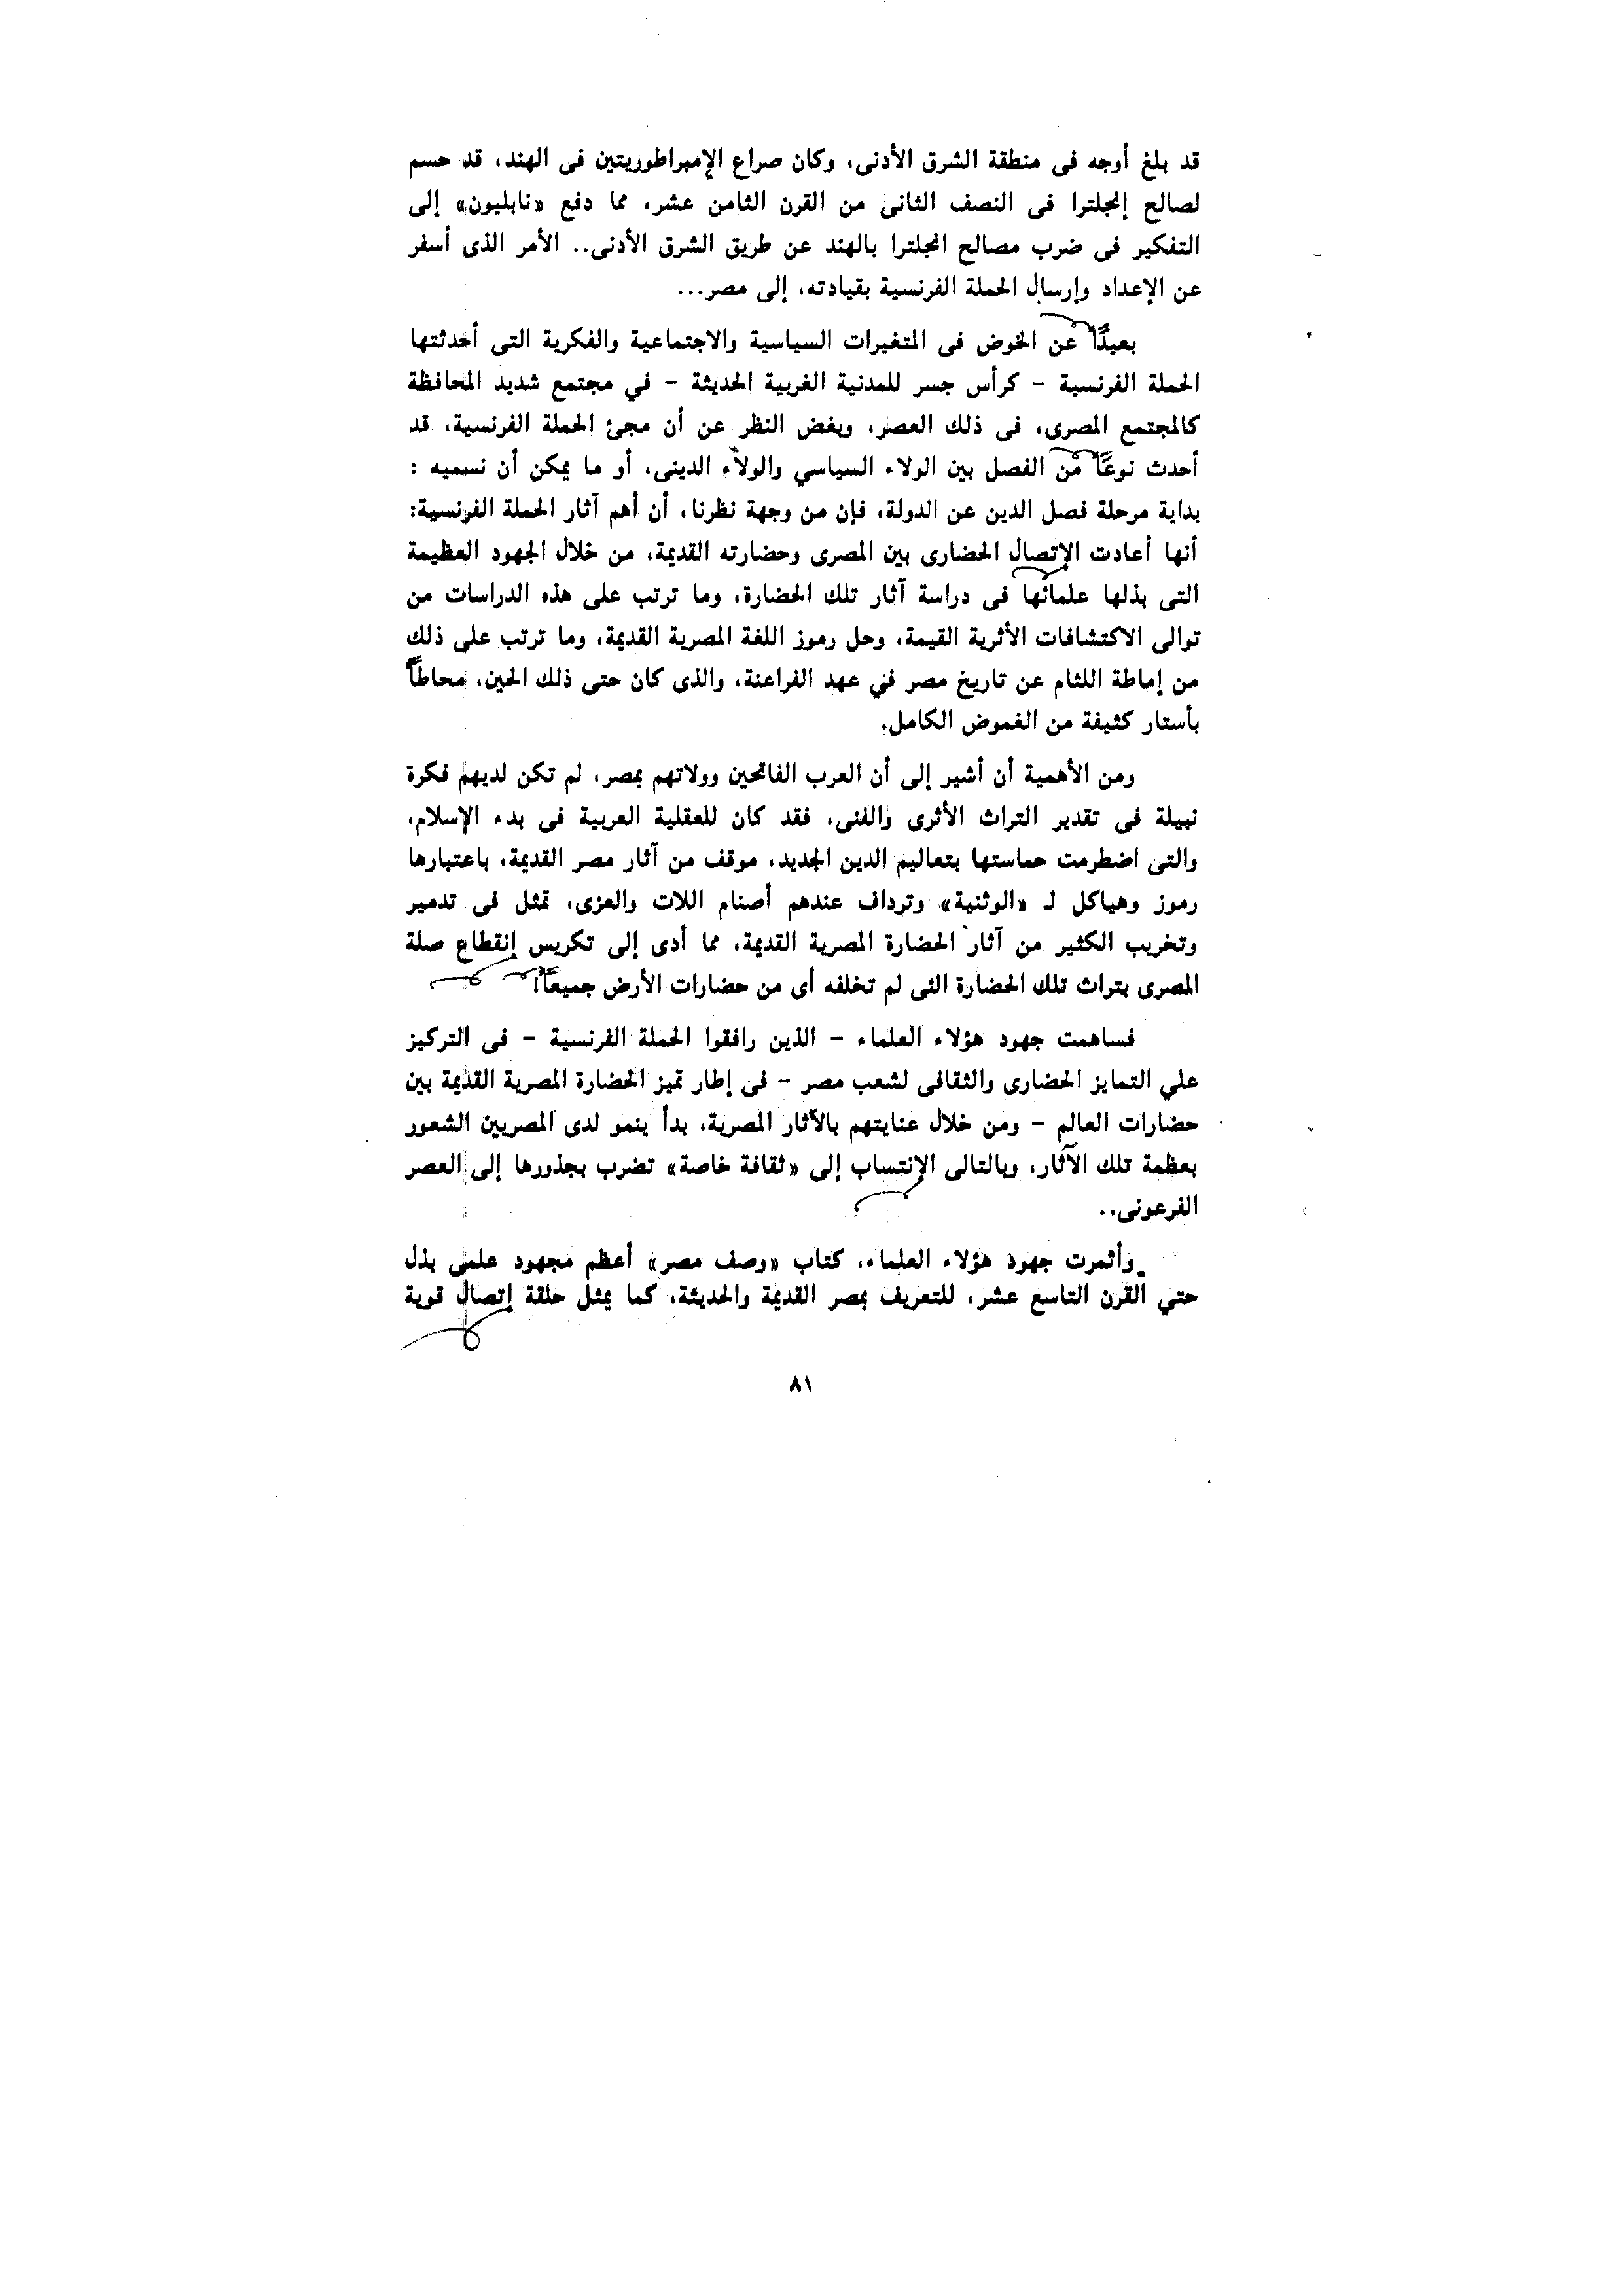 قد بلغ أوجه فى منطقة الشرق الأدنى، وكان صراع الإمبراطوريتين فى الهند، قد حسم
لصالح إنجلترا فى النصف الثانى من القرن الثامن عشر، مما دفع «نابليون» إلى
التفكير فى ضرب مصالح انجلترا بالهند عن طريق الشرق الأدنى.. الأمر الذى أسفر
عن الإعداد وإرسال الحملة الفرنسية بقيادته، إلى مصر...
بعيدًا عن الخوض فى المتغيرات السياسية والاجتماعية والفكرية التى أحدثتها
الحملة الفرنسية - كرأس جسر للمدنية الغربية الحديثة - في مجتمع شديد المحافظة
كالمجتمع المصرى، فى ذلك العصر، وبغض النظر عن أن مجئ الحملة الفرنسية، قد
أحدث نوعًا من الفصل بين الولاء السياسي والولاء الدينى، أو ما يمكن أن نسميه :
بداية مرحلة فصل الدين عن الدولة، فإن من وجهة نظرنا، أن أهم آثار الحملة الفرنسية:
أنها أعادت الإتصال الحضارى بين المصرى وحضارته القديمة، من خلال الجهود العظيمة
التى بذلها علمائها فى دراسة آثار تلك الحضارة، وما ترتب على هذه الدراسات من
توالى الاكتشافات الأثرية القيمة، وحل رموز اللغة المصرية القديمة، وما ترتب علي ذلك
من إماطة اللثام عن تاريخ مصر في عهد الفراعنة، والذى كان حتى ذلك الحين، محاطاً
بأستار كثيفة من الغموض الكامل.
ومن الأهمية أن أشير إلى أن العرب الفاتحين وولاتهم بمصر، لم تكن لديهم فكرة
نبيلة فى تقدير التراث الأثرى والفنى، فقد كان للعقلية العربية فى بدء الإسلام،
والتى اضطرمت حماستها بتعاليم الدين الجديد، موقف من آثار مصر القديمة، باعتبارها
رموز وهياكل لـ «الوثنية» وترداف عندهم أصنام اللات والعزى، تمثل فى تدمير
وتخريب الكثير من آثار الحضارة المصرية القديمة، مما أدى إلى تكريس إنقطاع صلة
المصرى بتراث تلك الحضارة التى لم تخلفه أى من حضارات الأرض جميعًا!
فساهمت جهود هؤلاء العلماء - الذين رافقوا الحملة الفرنسية - فى التركيز
علي التمايز الحضارى والثقافى لشعب مصر - فى إطار تميز الحضارة المصرية القديمة بين
حضارات العالم - ومن خلال عنايتهم بالآثار المصرية، بدأ ينمو لدى المصريين الشعور
بعظمة تلك الآثار، وبالتالى الإنتساب إلى «ثقافة خاصة» تضرب بجذورها إلى العصر
الفرعونى..
وأثمرت جهود هؤلاء العلماء، كتاب «وصف مصر» أعظم مجهود علمى بذل
حتي القرن التاسع عشر، للتعريف بمصر القديمة والحديثة، كما يمثل حلقة إتصال قوية
٨١